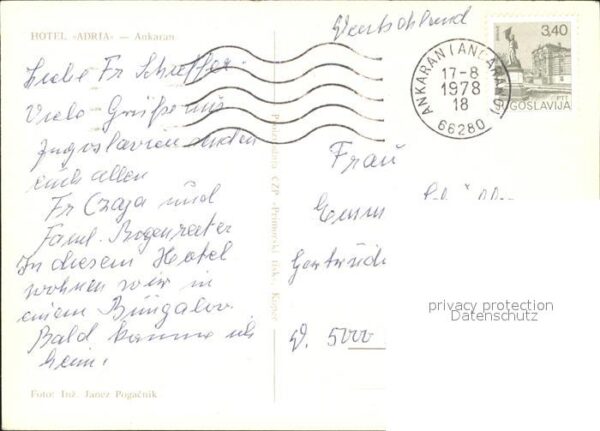 HOTEL »ADRIA« — Ankaran
Deutschland
3,40
JUGOSLAVIJA
ANKARAN (ANCARANO)
17-8
1978
18
66280
Liebe Fr Scheffer.
Viele Grüße aus
Jugoslavien senden
euch allen
Fr Czaja und
Faml. Bogenreiter
In diesem Hotel
wohnen wir in
einem Bungalov.
Bald komme ich
heim.
Foto: Inž. Janez Pogačnik
CZP »Primorski tisk«, Koper
Frau
Gertrüde
D. 5000
privacy protection
Datenschutz